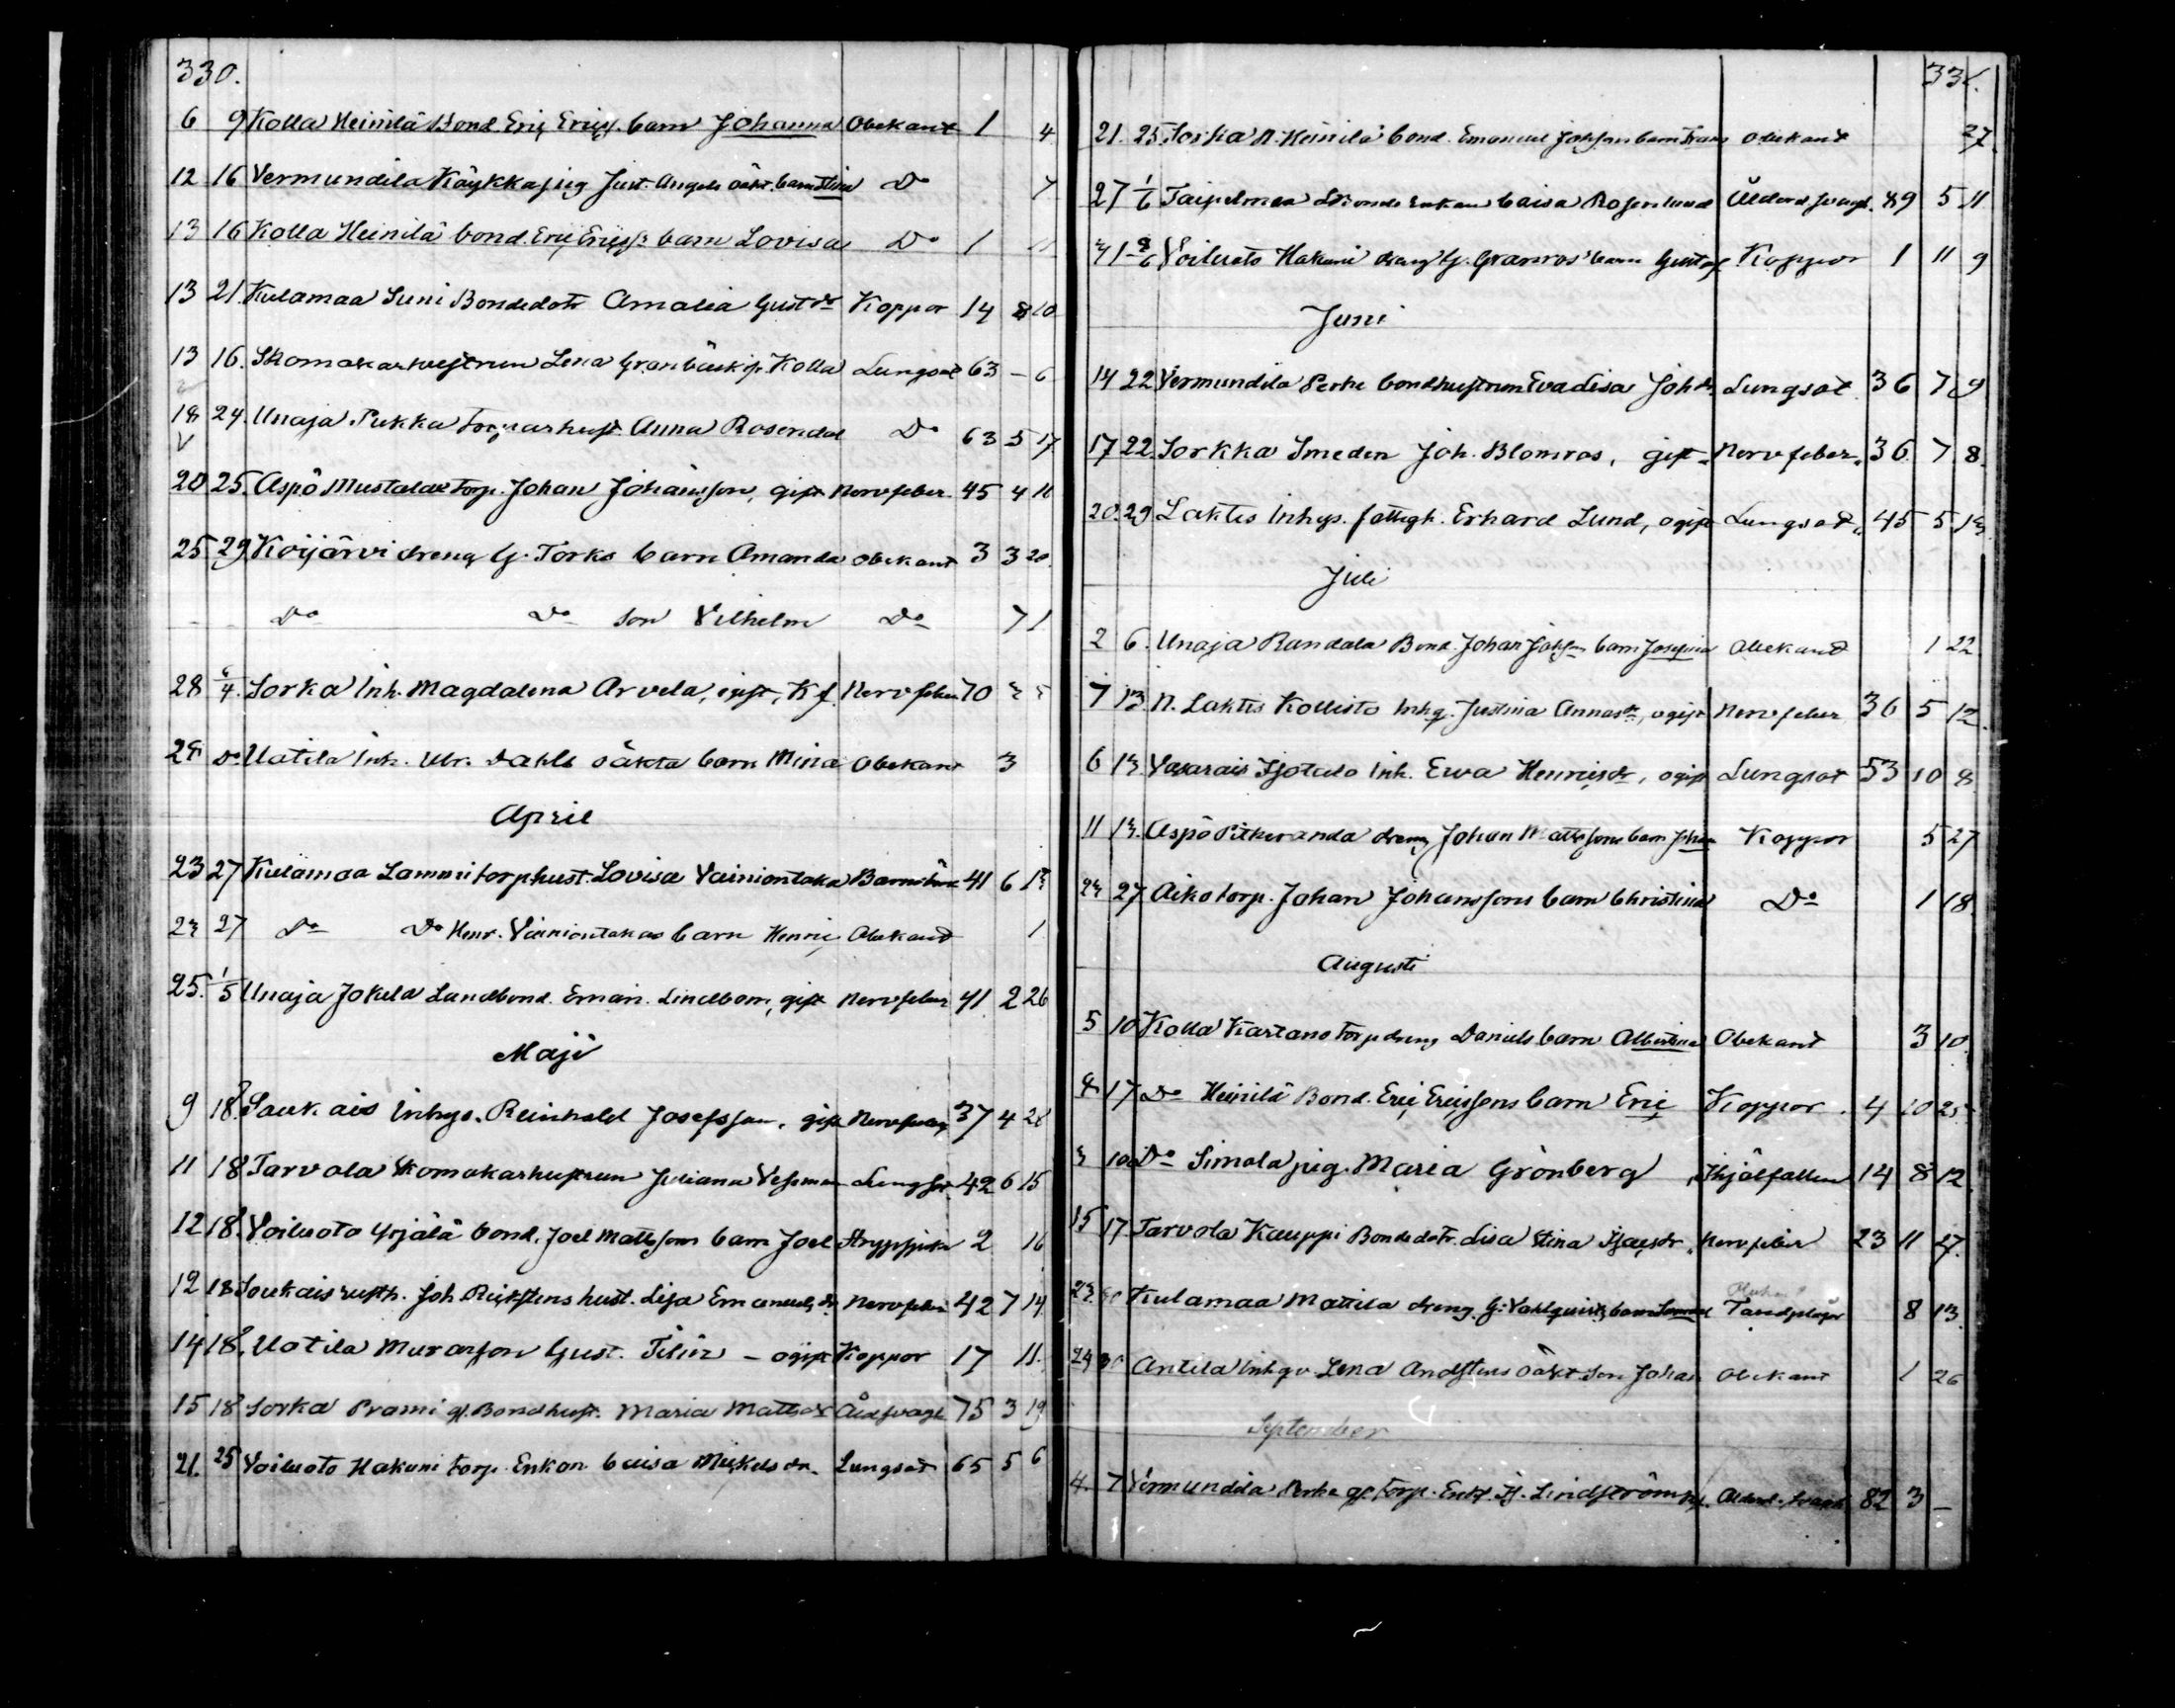 330.
6 9 Kolla Heinilä Bond. Eric Ericss. barn Johanna Obekant 1 4
12 16 Vermundila Käykka pig Just. Angels oäkt. barn Stina Do 7
13 16 Kolla Heinilä bond. Eric Ericss. barn Lovisa Do 1 11
13 21. Kulamaa Suni Bondedotr Amalia Gustdr Koppor 14 8 10
13 16. Skomakarhustrun Lena Granbäck fr. Kolla Lungsot 63 – 6
18 24. Unaja Pukka Torparhust. Anna Rosendal Do 63 5 17
20 25. Aspö Mustalax Torp. Johan Johansson, gift Nervfeber 45 4 11
25 29. Koijärvi dreng G. Torks barn Amanda Obekant 3 3 20.
– – Do Do son Vilhelm Do 7 1
28 6/4. Sorka Inh. Magdalena Arvela, ogift, Kf. Nervfeber 70
28 Do Uotila Inh. Ulr. Dahls oäkta barn Mina Obekant 3
April
23 27 Kulamaa Lammi torphust. Lovisa Vainiontaka Barnsbörd 41 6 13
23 27 Do Do Henr. Vainiontakas barn Henric Obekand 1
25. 1/5 Unaja Jokela Landbond. Eman. Lindbom, gift Nervfeber 41 2 26
Maji
9 18. Soukais Inhys. Reinhold Josefsson, gift Nervfeber 37 4 28
11 18 Tarvola Skomakarhustrun Juliana Vessman Lungsot 42 6 15
12 18. Voiluoto Yrjälä bond. Joel Mattssons barn Joel Strypsjukan 2 16
12 18 Soukais rusth. Joh. Rickstens hust. Lisa Emanuelsdr. Nervfeber 42 7 14
14 18. Uotila Murarson Gust. Tilén – ogift Koppor 17 11.
15 18 Sorka Prami gl. Bondhust. Maria Mattsdr Åldsvagh 75 3 19
21. 25 Voiluoto Hakuni torp. Enkan Caisa Mickelsdr. Lungsot 65 5 6
331.
21. 25. Sorkka N. Heinilä bond. Emanuel Johssons barn Frans Obekant 27.
27 1/6 Taipelmaa Bonde Enkan Caisa Rosenlund Ålderd. svagh. 89 5 11
31 8/6 Voiluoto Hakuni dreng G. Granros barn Gustaf Koppor 1 11 9
Juni
14 22 Vermundila Perhe bondhustrun Eva Lisa Johdr. Lungsot 36 7 9
17 22. Sorkka Smeden Joh. Blomros, gift Nervfeber. 36 7 8.
20. 29 Laktis Inhys. fattigh. Erhard Lund, ogift Lungsot. 45 5 13
Juli
2 6. Unaja Randala Bond. Johan Johssons barn Josefina Obekand 1 22
7 13 N. Laktis Kollisto Inhy. Justina Annasdr, ogift Nervfeber 36 5 12.
6 13 Vasarais Isotalo Inh. Ewa Henricsdr, ogift Lungsot 53 10 8
11 13. Aspö Pitkeranda dreng Johan Mattssons barn Johan Koppor 5 27
23 27 Aiko torp. Johan Johanssons barn Christina Do 1 18
Augusti
5 10 Kolla Kartano Torp dreng Daniels barn Albertina Obekant 3 10
8 17 Do Heinilä Bond. Eric Ericssons barn Eric Koppor 4 10 25
3 10 Do Simola pig. Maria Grönberg Ihjälfallen 14 8 12
15 17 Tarvola Kauppi Bondedotr. Lisa Stina Isacsdr Nervfeber 23 11 27.
23 30 Kulamaa Mattila dreng G. Vahlqvists barn Tandplågor 8 13
24 30 Antila Inhys Lena Andstens oäkt. Son Johan Obekant 1 26
September
4. 7 Vermundila Perhe gl. Torp. Enk. Lindström Ålderd. svagh 82 3 –